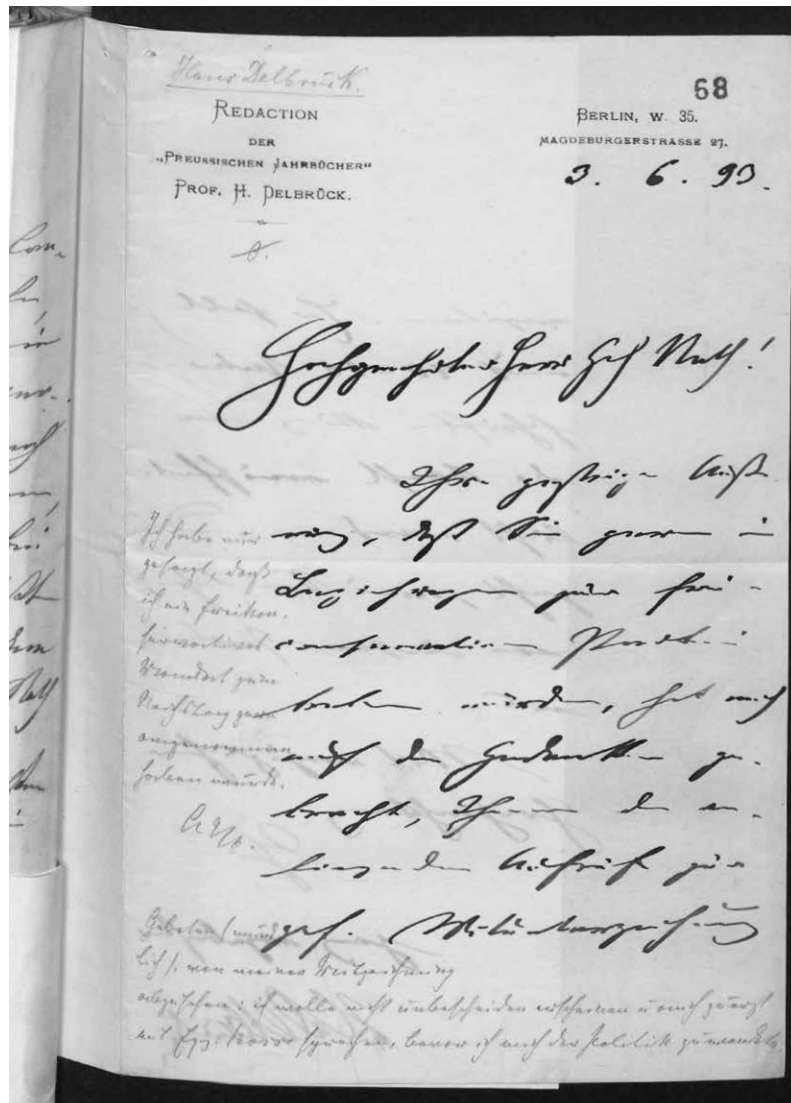 Hans Delbrück.
68
REDACTION
DER
„PREUSSISCHEN JAHRBÜCHER“
PROF. H. DELBRÜCK.
BERLIN, W. 35.
MAGDEBURGERSTRASSE 27.
3. 6. 93.
Hochgeehrter Herr Geh Rath!
Ihre gestrige Äuße
rung, daß Sie gern in
Beziehungen zur frei-
conservativen Partei
treten würden, hat mich
auf den Gedanken ge-
bracht, Ihnen den an-
liegenden Aufruf zur
gef. Mitunterzeichnung
Ich habe nur
gesagt, daß
ich ein freikon.
servatives
Mandat zum
Reichstag gern
angenommen
haben würde.
Gebeten (münd
lich), von meiner Mitzeichnung
abzusehen; ich wolle nicht unbescheiden erscheinen u mich zuerst
mit Exz. Bosse sprechen, bevor ich mich der Politik zuwendete.